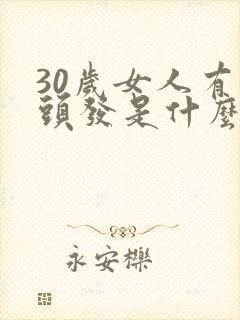 30歲女人有
頭發是什麼
永安櫟